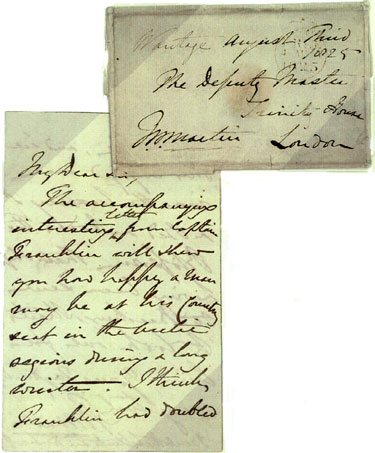 Wantage August Third
1825
The Deputy Master
Trinity House
Martin London
My Dear Sir,
The accompanying
interesting letter from Captain
Franklin will shew
you how happy a man
may be at his Country
seat in the Arctic
regions during a long
winter. I think
Franklin had doubled